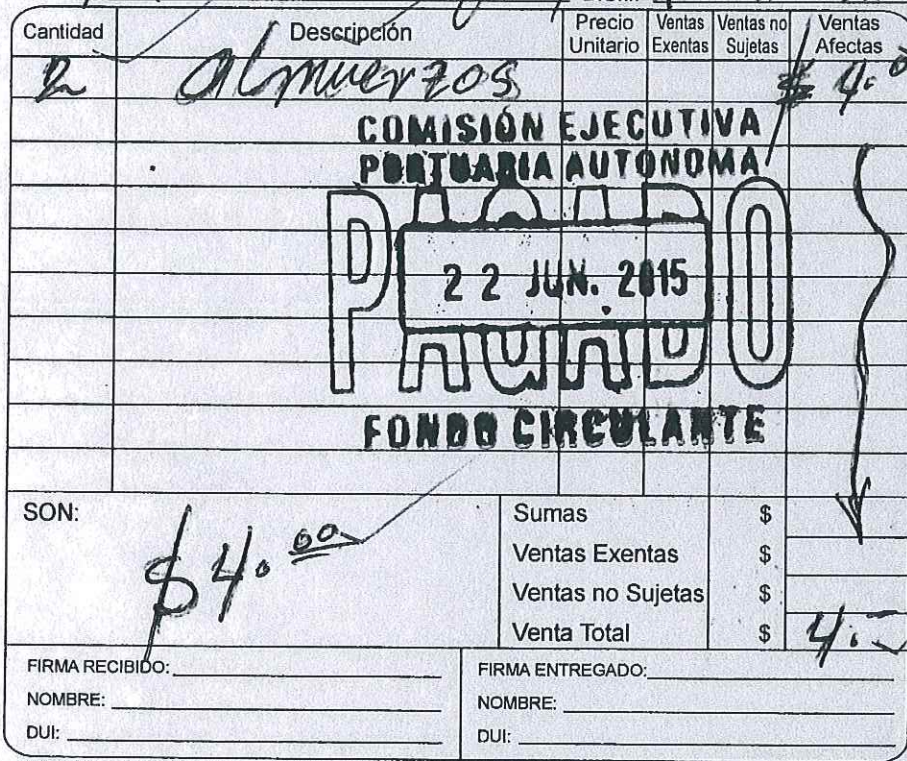 Cantidad Descripción Precio Unitario Ventas Exentas Ventas no Sujetas Ventas Afectas
2 almuerzos $ 4.0
COMISIÓN EJECUTIVA
PORTUARIA AUTONOMA
PAGADO
22 JUN. 2015
FONDO CIRCULANTE
SON: $ 4.00
Sumas $
Ventas Exentas $
Ventas no Sujetas $
Venta Total $ 4.-
FIRMA RECIBIDO: FIRMA ENTREGADO:
NOMBRE: NOMBRE:
DUI: DUI: